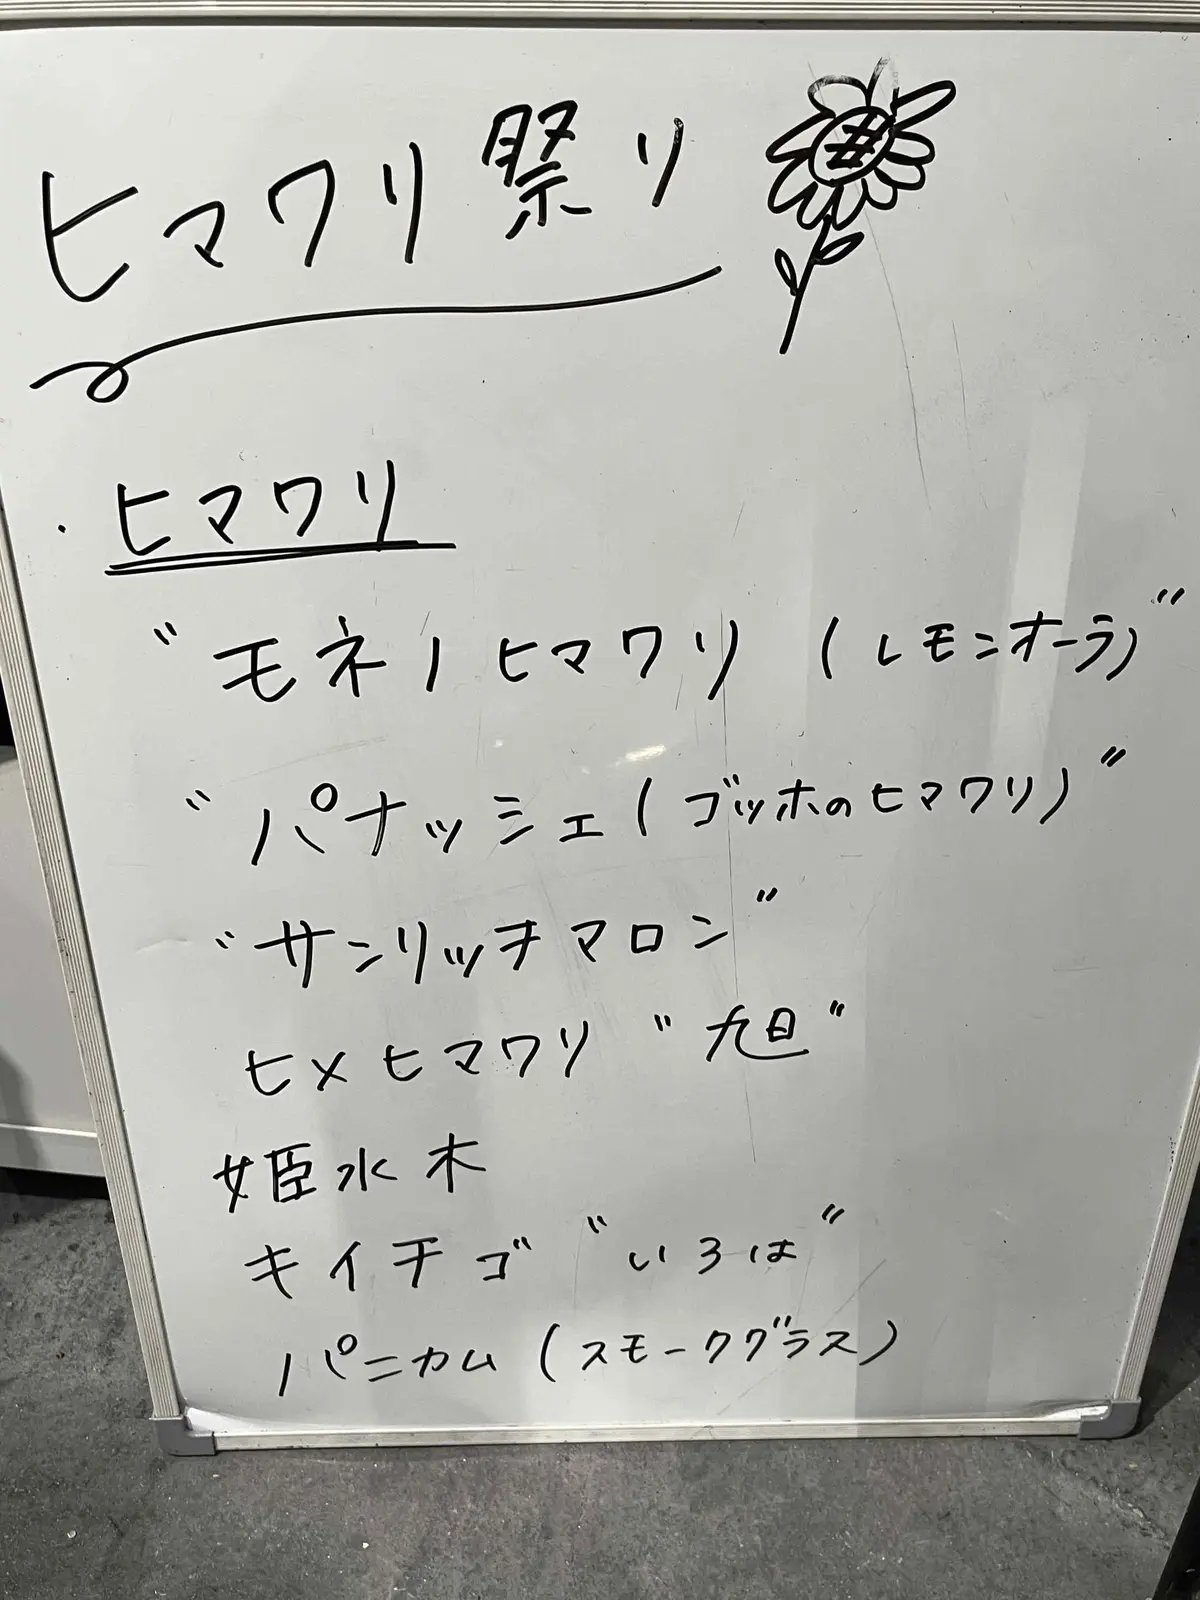 ヒマワリ祭り
・ヒマワリ
"モネノヒマワリ(レモンオーラ)"
"パナッシェ(ゴッホのヒマワリ)"
"サンリッチマロン"
ヒメヒマワリ "旭"
姫水木
キイチゴ "いろは"
パニカム(スモークグラス)